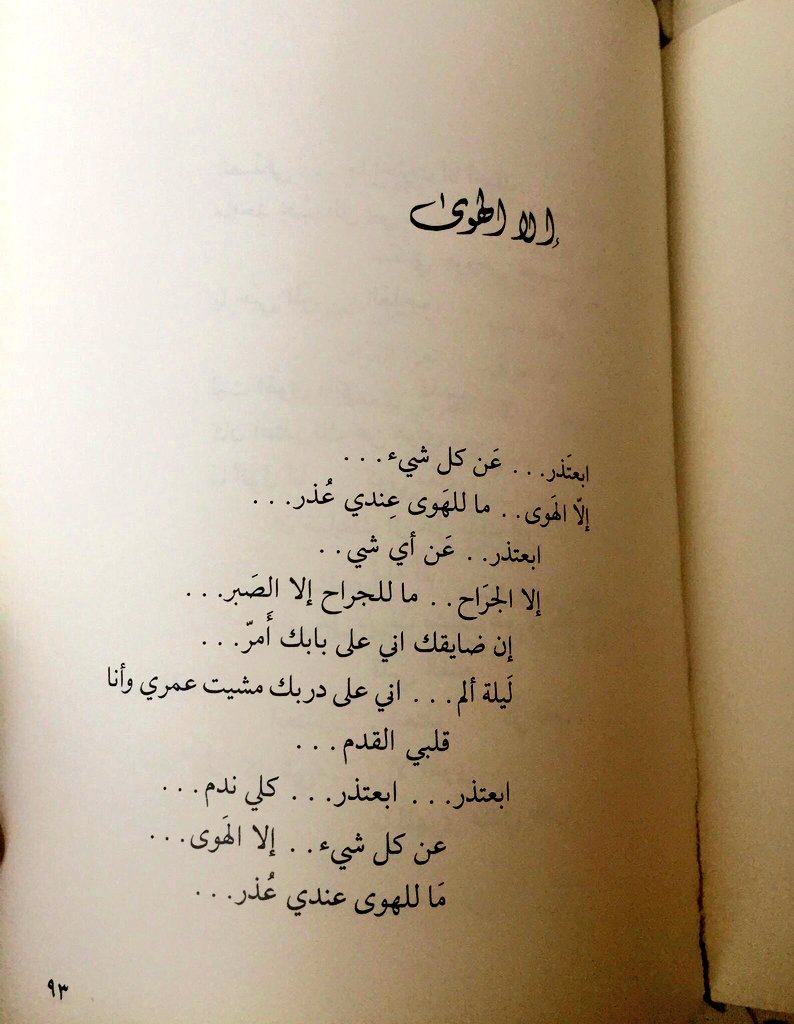 إلا الهوىٰ
ابعتَذر... عَن كل شيء...
إلّا الهَوى.. ما للهَوى عِندي عُذر...
ابعتذر.. عَن أي شي..
إلا الجرَاح.. ما للجراح إلا الصَبر...
إن ضايقك اني على بابك أَمرّ...
لَيلة ألم... اني على دربك مشيت عمري وأنا
قلبي القدم...
ابعتذر... ابعتذر... كلي ندم...
عن كل شيء.. إلا الهَوى...
مَا للهوى عندي عُذر...
٩٣